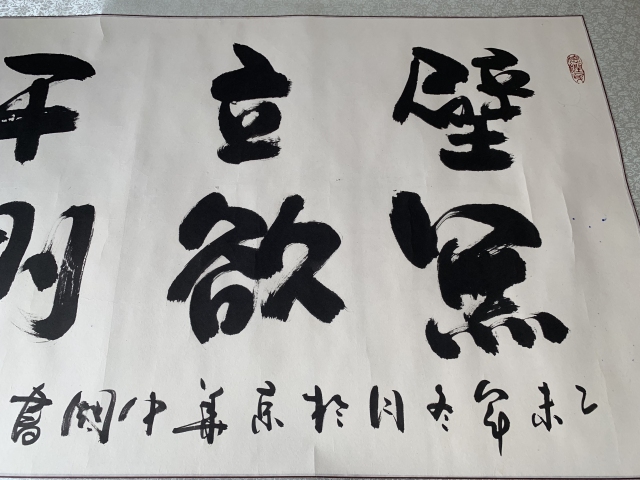 壁立千
無欲則
乙未年冬月於京華中國書